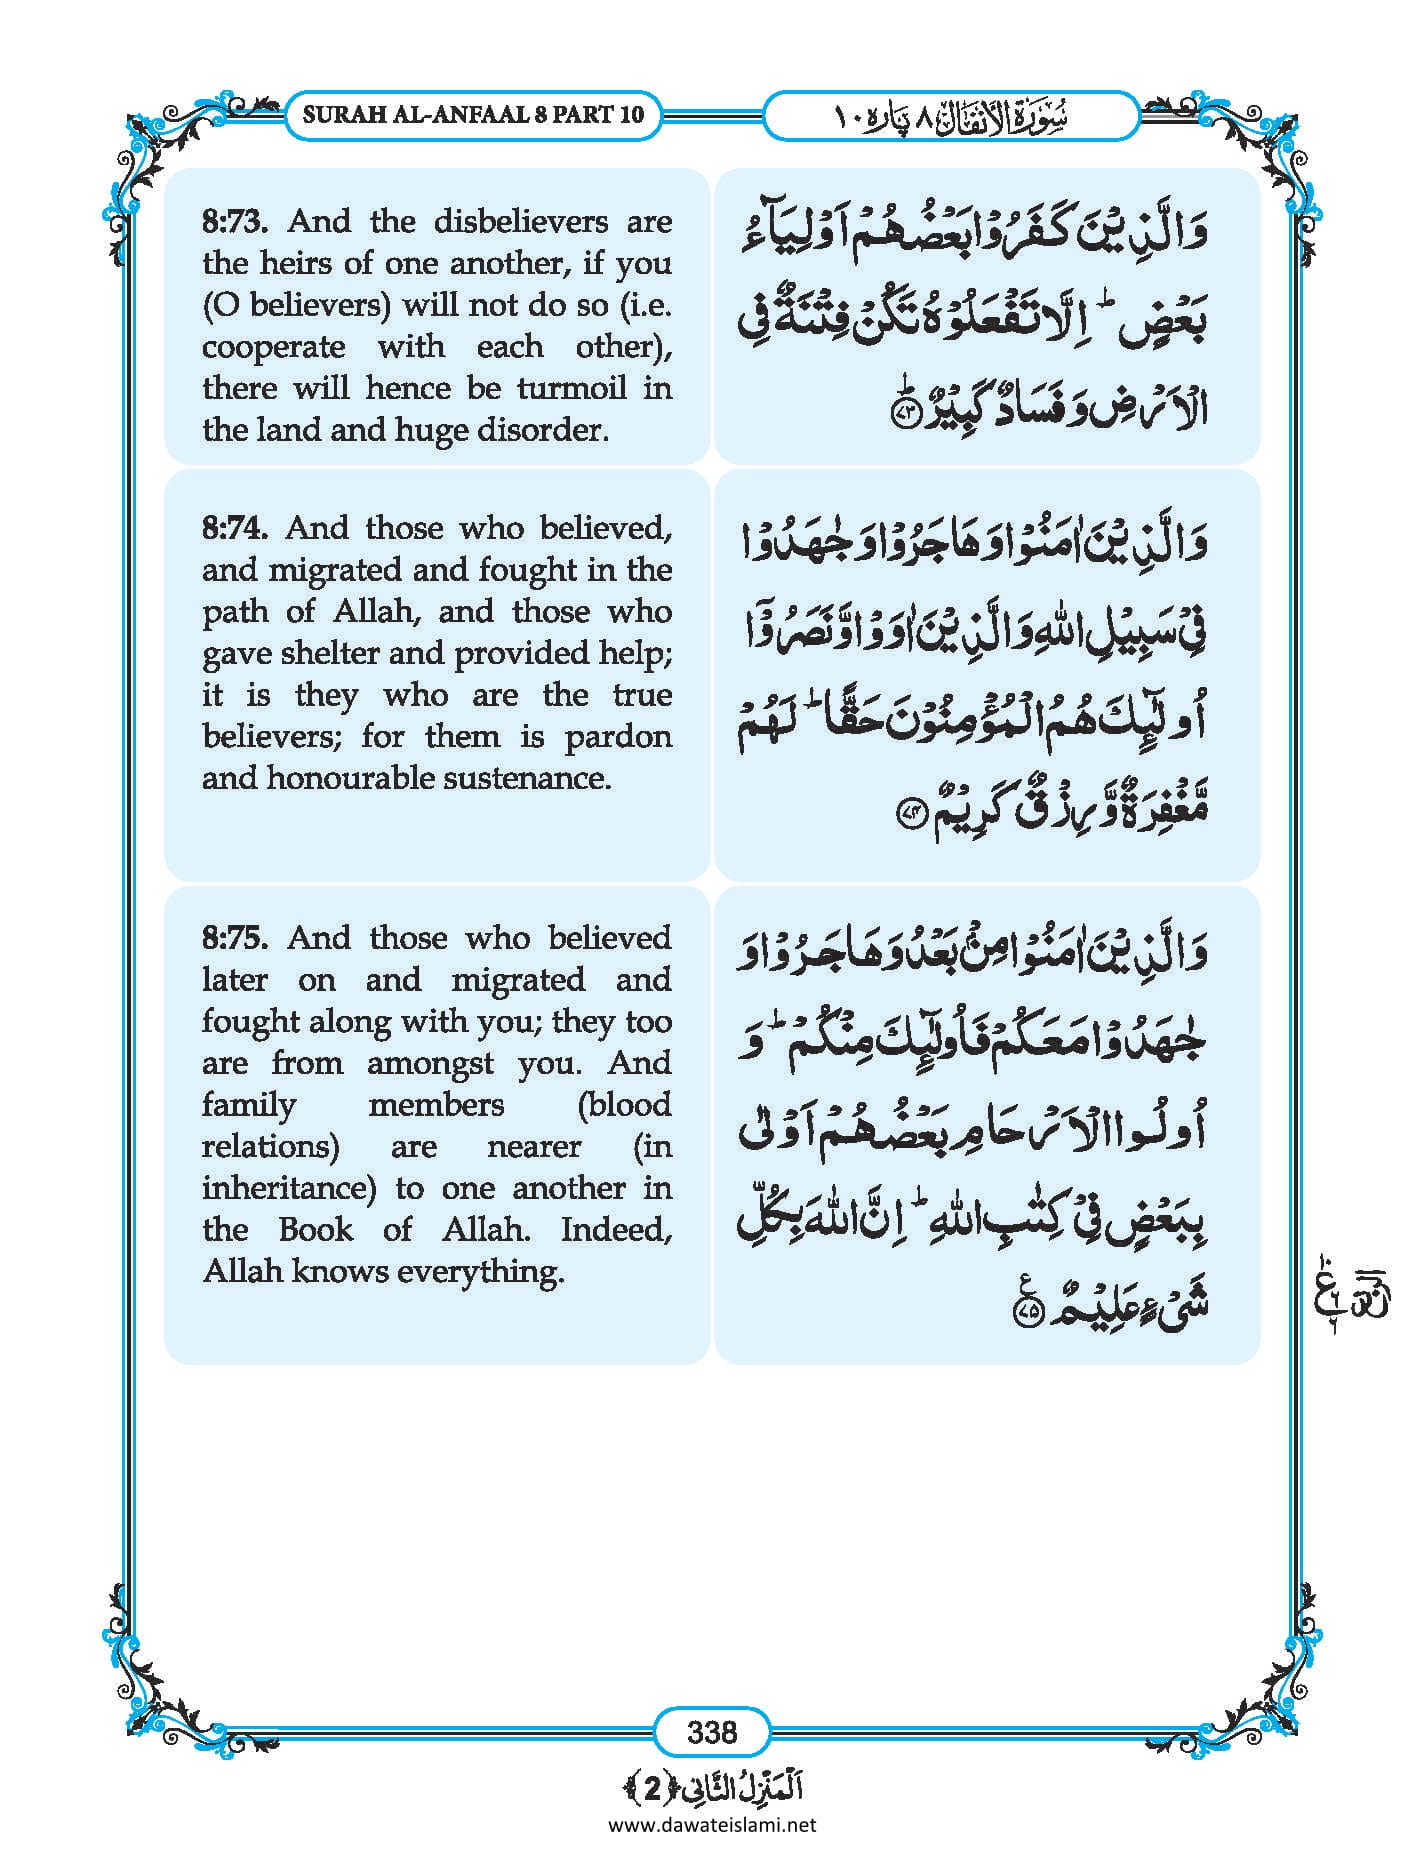 SURAH AL-ANFAAL 8 PART 10
سُوْرَةُ الْاَنْفَال ٨ پَارہ ١٠
8:73. And the disbelievers are
the heirs of one another, if you
(O believers) will not do so (i.e.
cooperate with each other),
there will hence be turmoil in
the land and huge disorder.
وَالَّذِیْنَ كَفَرُوْا بَعْضُهُمْ اَوْلِیَآءُ
بَعْضٍ ؕ اِلَّا تَفْعَلُوْهُ تَكُنْ فِتْنَةٌ فِی
الْاَرْضِ وَ فَسَادٌ كَبِیْرٌ ؕ ﴿۷۳﴾
8:74. And those who believed,
and migrated and fought in the
path of Allah, and those who
gave shelter and provided help;
it is they who are the true
believers; for them is pardon
and honourable sustenance.
وَالَّذِیْنَ اٰمَنُوْا وَ هَاجَرُوْا وَ جٰهَدُوْا
فِیْ سَبِیْلِ اللهِ وَالَّذِیْنَ اٰوَوْا وَّ نَصَرُوْۤا
اُولٰٓئِكَ هُمُ الْمُؤْمِنُوْنَ حَقًّا ؕ لَهُمْ
مَّغْفِرَةٌ وَّ رِزْقٌ كَرِیْمٌ ﴿۷۴﴾
8:75. And those who believed
later on and migrated and
fought along with you; they too
are from amongst you. And
family members (blood
relations) are nearer (in
inheritance) to one another in
the Book of Allah. Indeed,
Allah knows everything.
وَالَّذِیْنَ اٰمَنُوْا مِنْۢ بَعْدُ وَ هَاجَرُوْا وَ
جٰهَدُوْا مَعَكُمْ فَاُولٰٓئِكَ مِنْكُمْ ؕ وَ
اُولُوا الْاَرْحَامِ بَعْضُهُمْ اَوْلٰی
بِبَعْضٍ فِیْ كِتٰبِ اللهِ ؕ اِنَّ اللهَ بِكُلِّ
شَیْءٍ عَلِیْمٌ ﴿۷۵﴾ ع
338
اَلْمَنْزِلُ الثَّانِی ﴿2﴾
www.dawateislami.net